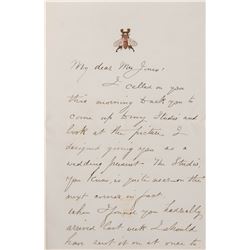 My dear Mr Jones:
I called on you
this morning to ask you to
come up to my Studio and
look at the picture I
designed giving you as a
wedding present. The Studio,
you know, is quite near on the
next corner in fact.
When I found you had really
arrived last week I should
have sent it on at once to